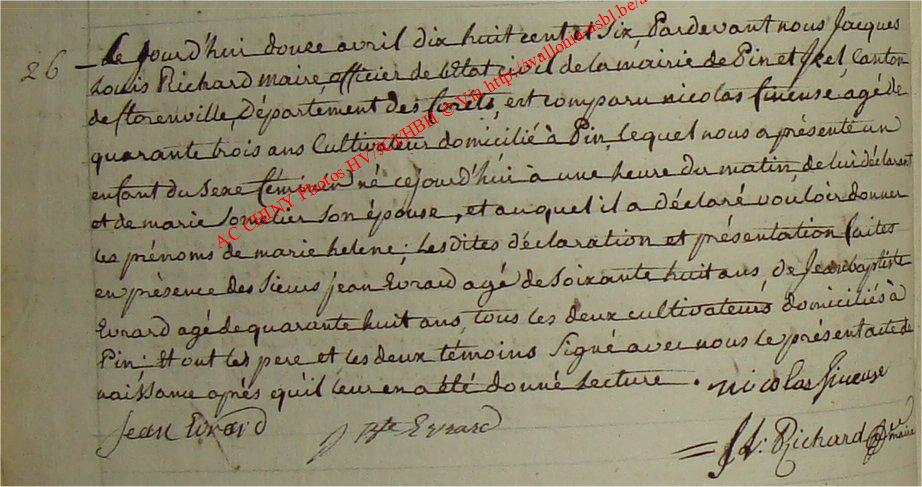 26 — Ce Jourd'hui douze avril dix huit cent et Six, Pardevant nous Jacques
Louis Richard maire, officier de létat civil de la mairie de Pin et Izel, Canton
de florenville, Département des forêts, est comparu nicolas Sineuse agé de
quarante trois ans Cultivateur domicilié à Pin, lequel nous a présenté un
enfant du Sexe féminin né cejourd'hui à une heure du matin, de lui déclarant
et de marie Somelier Son épouse, et auquel il a déclaré vouloir donner
les prénoms de marie helene; lesdites déclaration et présentation faites
en présence des Sieurs jean Evrard agé de soixante huit ans, de Jeanbaptiste
Evrard agé de quarante huit ans, tous les deux cultivateurs domiciliés à
Pin. Et ont les pere et les deux témoins Signé avec nous le présent acte de
naissance après qu'il leur en a été donné lecture. nicolas Sineuse
Jean Evrard J Bte Evrard
= J L: Richard maire
AC CHINY Photos HV/SCHHBH © Via http://avalloniensisbl.be/a